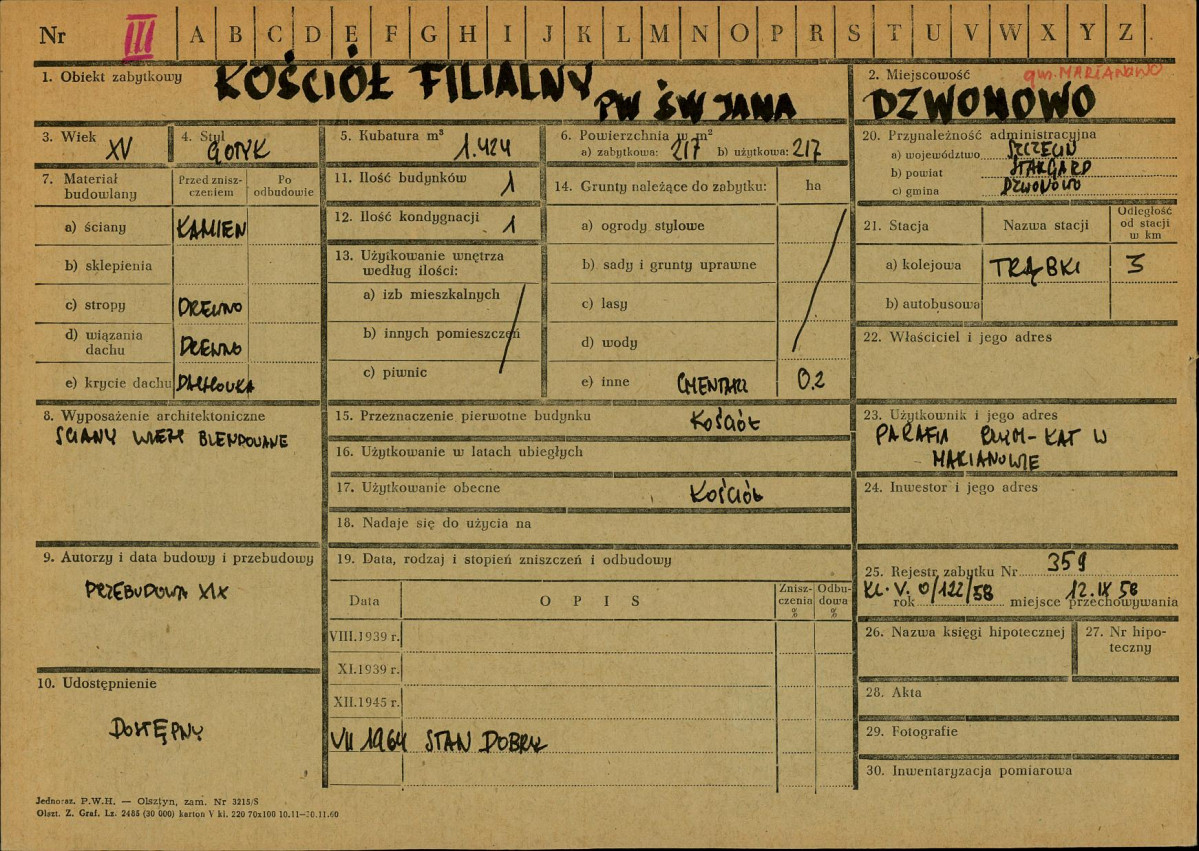 Nr III A B C D E F G H I J K L M N O P R S T U V W X Y Z
1. Obiekt zabytkowy KOŚCIÓŁ FILIALNY
PW ŚW JANA
2. Miejscowość gm. MARIANOWO
DZWONOWO
3. Wiek XV
4. Styl GOTYK
5. Kubatura m³ 1.424
6. Powierzchnia w m²
a) zabytkowa: 217 b) użytkowa: 217
20. Przynależność administracyjna
a) województwo SZCZECIN
b) powiat STARGARD
c) gmina DZWONOWO
7. Materiał budowlany
Przed znisz-
czeniem
Po
odbudowie
a) ściany KAMIEŃ
b) sklepienia
c) stropy DREWNO
d) wiązania
dachu DREWNO
e) krycie dachu DACHÓWKA
11. Ilość budynków 1
12. Ilość kondygnacji 1
13. Użytkowanie wnętrza
według ilości:
a) izb mieszkalnych
b) innych pomieszczeń
c) piwnic
14. Grunty należące do zabytku: ha
a) ogrody stylowe
b) sady i grunty uprawne
c) lasy
d) wody
e) inne CMENTARZ 0.2
21. Stacja
Nazwa stacji
Odległość
od stacji
w km
a) kolejowa TRĄBKI 3
b) autobusowa
22. Właściciel i jego adres
8. Wyposażenie architektoniczne
ŚCIANY WIEŻY BLENDOWANE
15. Przeznaczenie pierwotne budynku KOŚCIÓŁ
16. Użytkowanie w latach ubiegłych
17. Użytkowanie obecne KOŚCIÓŁ
18. Nadaje się do użycia na
23. Użytkownik i jego adres
PARAFIA RZYM-KAT W
MARIANOWIE
24. Inwestor i jego adres
9. Autorzy i data budowy i przebudowy
PRZEBUDOWA XIX
19. Data, rodzaj i stopień zniszczeń i odbudowy
Data
OPIS
Znisz-
czenia
%
Odbu-
dowa
%
VIII.1939 r.
XI.1939 r.
XII.1945 r.
VII 1964 STAN DOBRY
25. Rejestr zabytku Nr 359
KL. V. 0/122/58 12.IX 58
rok miejsce przechowywania
26. Nazwa księgi hipotecznej
27. Nr hipo-
teczny
10. Udostępnienie
DOSTĘPNY
28. Akta
29. Fotografie
30. Inwentaryzacja pomiarowa
Jednoraz. P.W.H. — Olsztyn, zam. Nr 3215/S
Olszt. Z. Graf. Lz. 2486 (30 000) karton V kl. 220 70x100 10.11—30.11.60